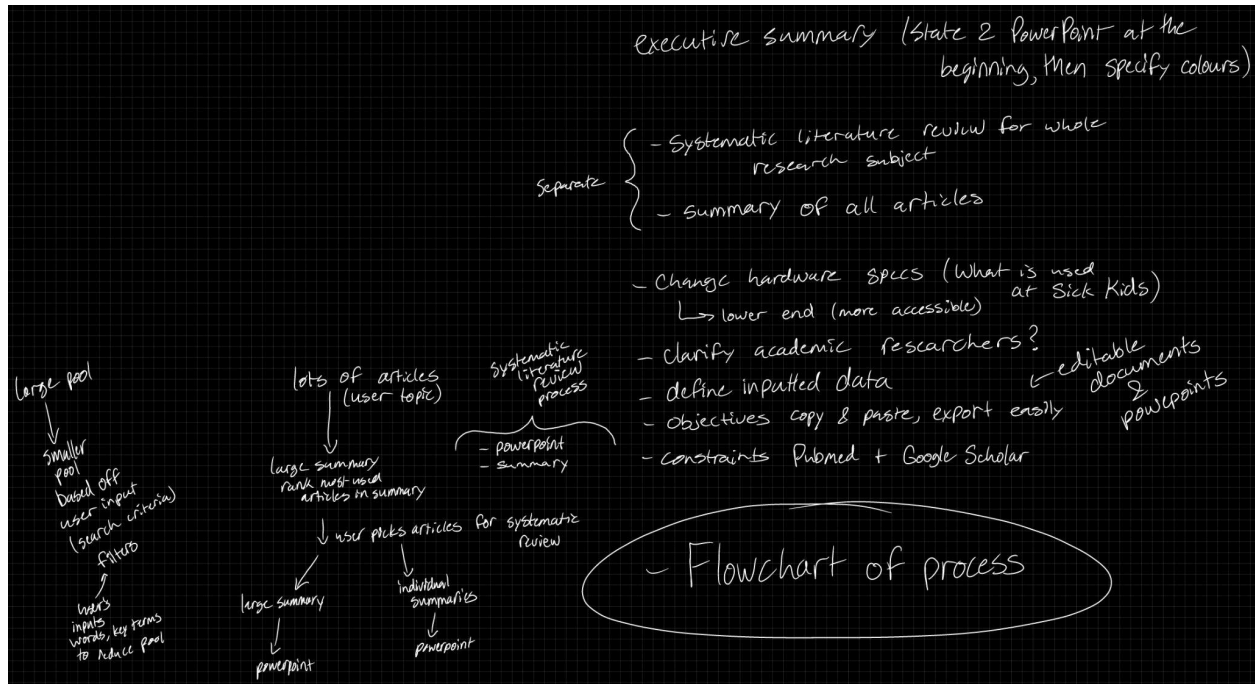 executive summary (state 2 PowerPoint at the
beginning, then specify colours)
Separate
- Systematic literature review for whole
research subject
- Summary of all articles
- Change hardware specs (What is used
at Sick Kids)
↳ lower end (more accessible)
- clarify academic researchers?
- define inputted data
- objectives copy & paste, export easily
← editable
documents
&
powepoints
- constraints Pubmed + Google Scholar
- Flowchart of process
large pool
smaller
pool
based off
user input
(search criteria)
filters
user's
inputs
words, key terms
to reduce pool
lots of articles
(user topic)
large summary
rank most used
articles in summary
user picks articles for systematic
review
large summary
powerpoint
individual
summaries
powerpoint
systematic
literature
review
process
- powerpoint
- summary